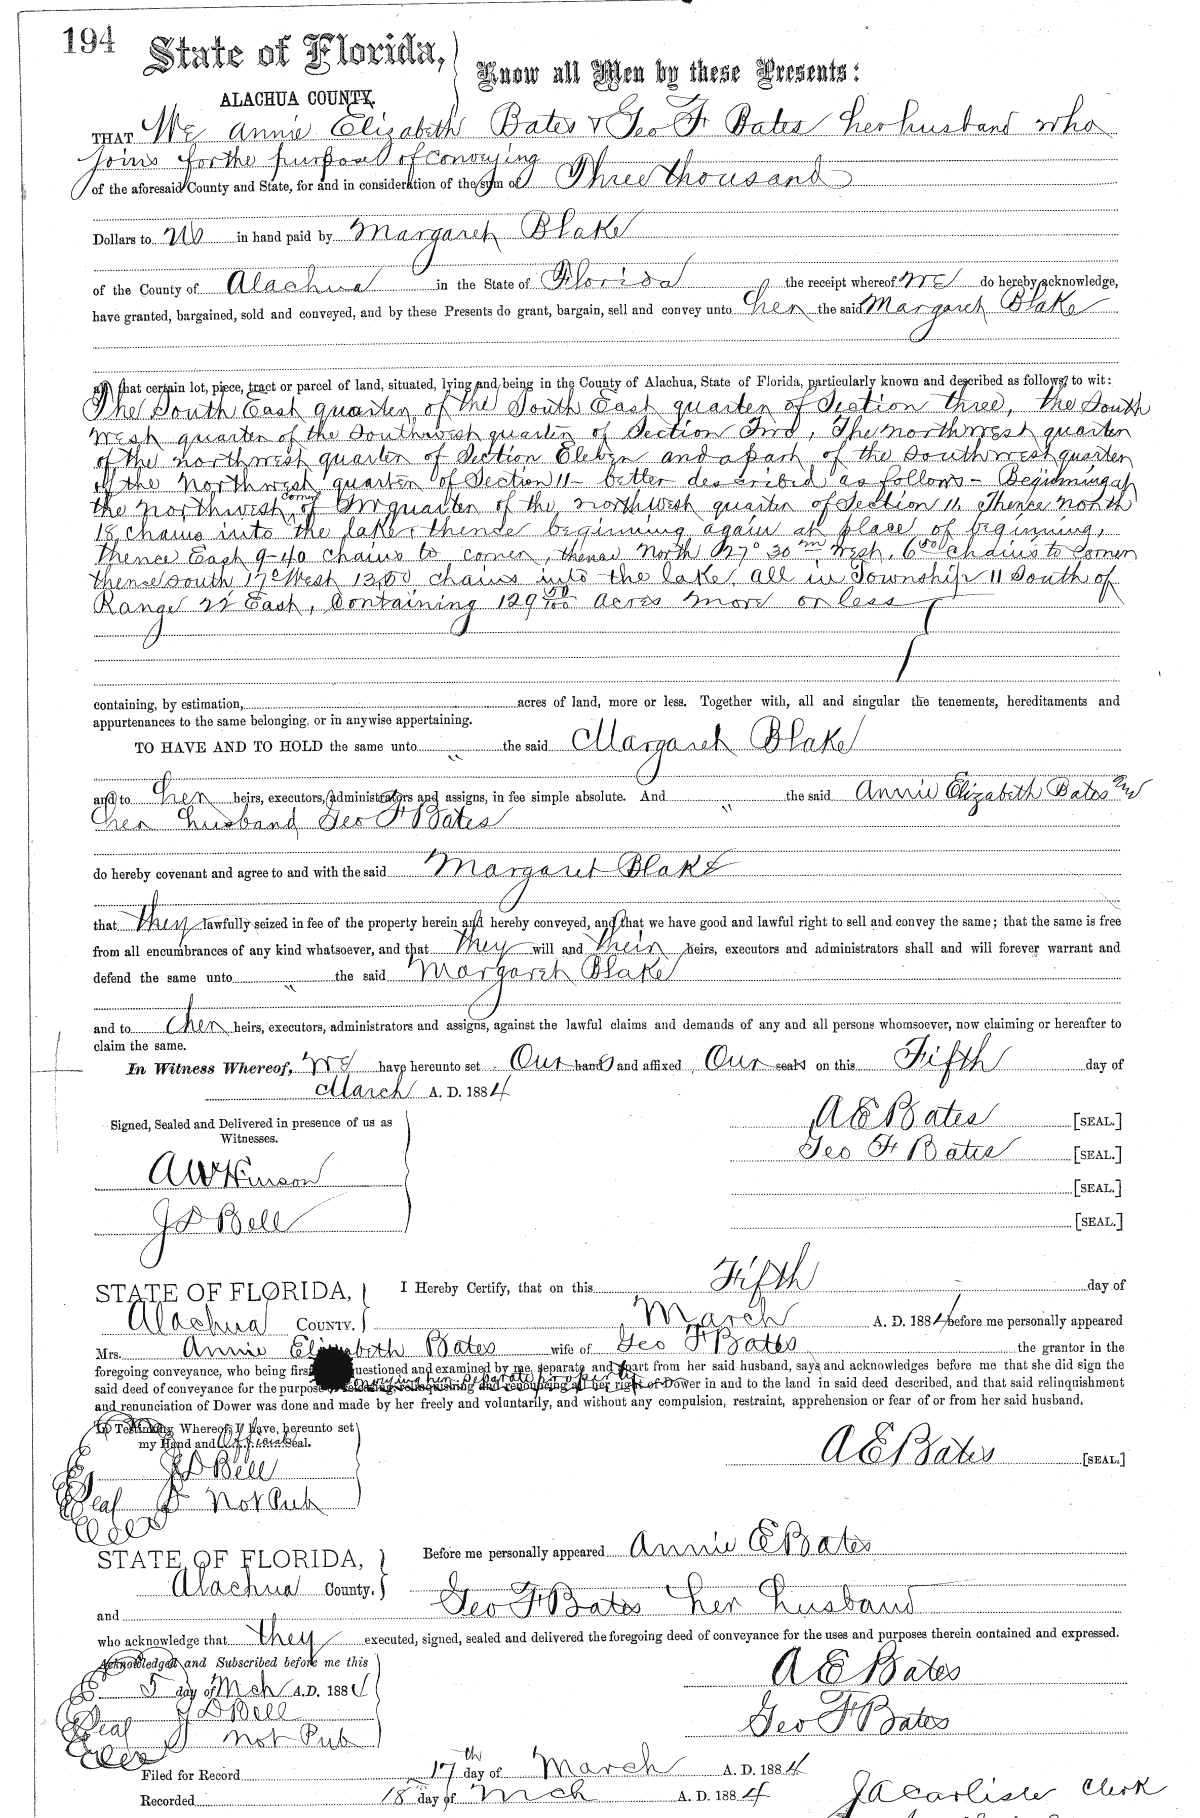 194
State of Florida,
ALACHUA COUNTY.
Know all Men by these Presents:
THAT We Annie Elizabeth Bates & Geo F Bates her husband who
joins for the purpose of conveying
of the aforesaid County and State, for and in consideration of the sum of Three thousand
Dollars to us in hand paid by Margaret Blake
of the County of Alachua in the State of Florida the receipt whereof we do hereby acknowledge,
have granted, bargained, sold and conveyed, and by these Presents do grant, bargain, sell and convey unto her the said Margaret Blake
all that certain lot, piece, tract or parcel of land, situated, lying and being in the County of Alachua, State of Florida, particularly known and described as follows, to wit:
The South East quarter of the South East quarter of Section three, the South
West quarter of the Southwest quarter of Section Two, The northwest quarter
of the northwest quarter of Section Eleven and a part of the Southwest quarter
of the Northwest quarter of Section 11 - better described as follows - Beginning at
the Northwest corner of quarter of the northwest quarter of Section 11, Thence north
18, chains into the lake, thence beginning again at place of beginning,
thence East 9-40 chains to corner, thence North 27° 30 m West, 6 50 chains to corner
thence South 17° West 13,50 chains into the lake, all in Township 11 South of
Range 22 East, Containing 129 50/100 acres more or less
containing, by estimation, acres of land, more or less. Together with, all and singular the tenements, hereditaments and
appurtenances to the same belonging, or in anywise appertaining.
TO HAVE AND TO HOLD the same unto " the said Margaret Blake
and to her heirs, executors, administrators and assigns, in fee simple absolute. And " the said Annie Elizabeth Bates and
her husband Geo F Bates
do hereby covenant and agree to and with the said Margaret Blake
that they lawfully seized in fee of the property herein and hereby conveyed, and that we have good and lawful right to sell and convey the same; that the same is free
from all encumbrances of any kind whatsoever, and that they will and their heirs, executors and administrators shall and will forever warrant and
defend the same unto " the said Margaret Blake
and to her heirs, executors, administrators and assigns, against the lawful claims and demands of any and all persons whomsoever, now claiming or hereafter to
claim the same.
In Witness Whereof, we have hereunto set Our hands and affixed Our seals on this Fifth day of
March A. D. 1884
Signed, Sealed and Delivered in presence of us as
Witnesses.
A E Bates [SEAL.]
Geo F Bates [SEAL.]
A W Hinson
[SEAL.]
J D Bell
[SEAL.]
STATE OF FLORIDA,
Alachua COUNTY.
I Hereby Certify, that on this Fifth day of
March A. D. 1884 before me personally appeared
Mrs. Annie Elizabeth Bates wife of Geo F Bates the grantor in the
foregoing conveyance, who being first questioned and examined by me, separate and apart from her said husband, says and acknowledges before me that she did sign the
conveying her separate property
said deed of conveyance for the purpose of releasing, relinquishing and renouncing all her right of Dower in and to the land in said deed described, and that said relinquishment
and renunciation of Dower was done and made by her freely and voluntarily, and without any compulsion, restraint, apprehension or fear of or from her said husband.
In Testimony Whereof, I have, hereunto set
my Hand and Official Seal.
J D Bell
Seal Not Pub
A E Bates [SEAL.]
STATE OF FLORIDA,
Alachua County.
Before me personally appeared Annie E Bates
and Geo F Bates her husband
who acknowledge that they executed, signed, sealed and delivered the foregoing deed of conveyance for the uses and purposes therein contained and expressed.
Acknowledged and Subscribed before me this
5 day of Mch A.D. 1884
J D Bell
Seal Not Pub
A E Bates
Geo F Bates
Filed for Record 17th day of March A. D. 1884
Recorded 18 day of Mch A. D. 1884
J A Carlisle Clerk